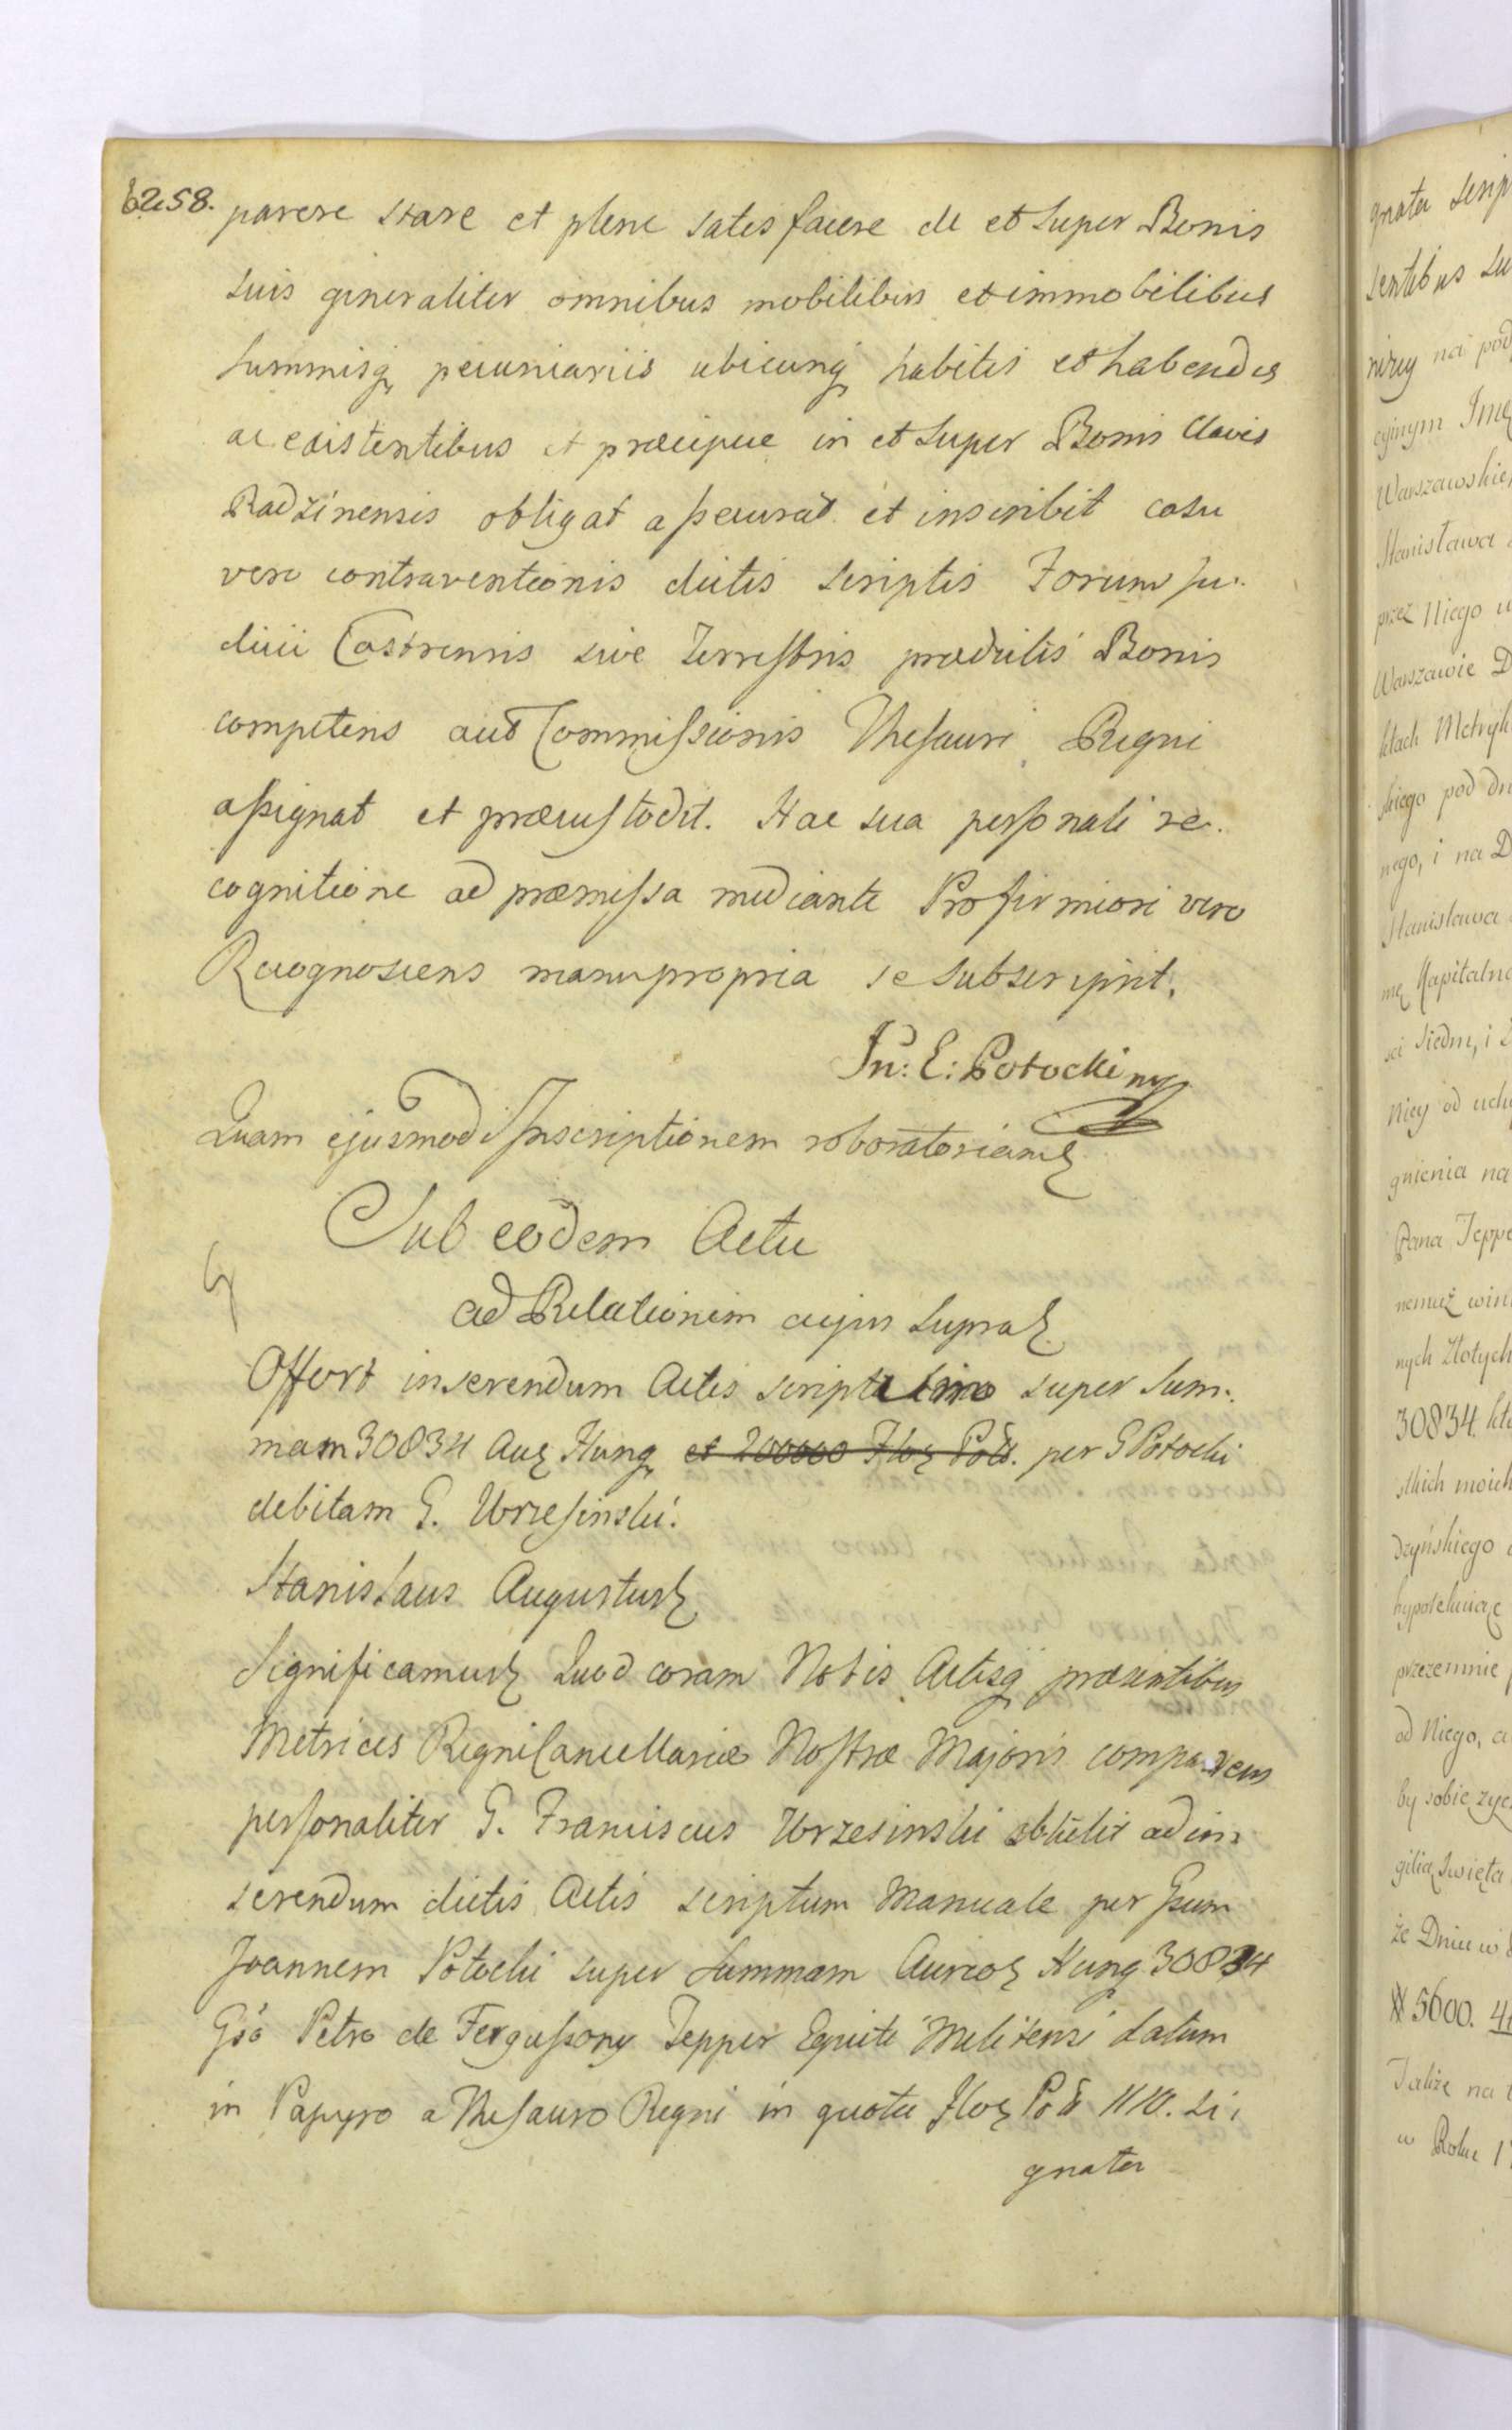 6258.
parere stare et plene satisfacere de et super Bonis
suis generaliter omnibus mobilibus et immobilibus
summisq pecuniariis ubicunq habitis et habendis
ac existentibus et præcipue in et super Bonis Clavis
Radzinensis obligat assecurat et inscribit casu
vero contraventionis dictis scriptis Forum Ju-
dicii Castrensis sive Terrestris prædictis Bonis
competens aut Commissionis Thesauri Regni
assignat et præcustodit. Hac sua personali re-
cognitione ad præmissa mediante Pro firmiori vero
Recognoscens manu propria se subscripsit.
Jn: E: Potocki mp
Quam ejusmodi Inscriptionem roboratoriam
Sub eodem Actu
ad Relationem cujus supra
Offert inserendum Actis script super Sum-
mam 30834 Au Hung et 200000 Flo Pol. per G Potocki
debitam G. Wrzesinski.
Stanislaus Augustus
Significamus Quod coram Nobis Actisq præsentibus
Metrices Regni Cancellariæ Nostræ Majoris comparens
personaliter G. Franciscus Wrzesinski obtulit ad in-
serendum dictis Actis scriptum Manuale per Gsum
Joannem Potocki super Summam Aureo Hung 30834
Gso Petro de Fergussony Tepper Equiti Militensi datum
in Papyro a Thesauro Regni in quota Flo Pol si-
gnata
gnata scrip
sentibus su
niżey na pod
Warszawskie
Stanisława
przez Niego u
Warszawie D
ktach Metryk
skiego pod dn
nego, i na D
Stanisława
mę Kapitalne
ści siedm, i
niey od uchy
gnienia na
Pana Teppe
nemuż win
nych Złotych
30834. kto
stkich moich
dzyńskiego
hypotekuiąc
przezemnie
od Niego, a
by sobie życ
gilią Święta
że Dniu w
# 5600. 4
Także na
w Roku 1